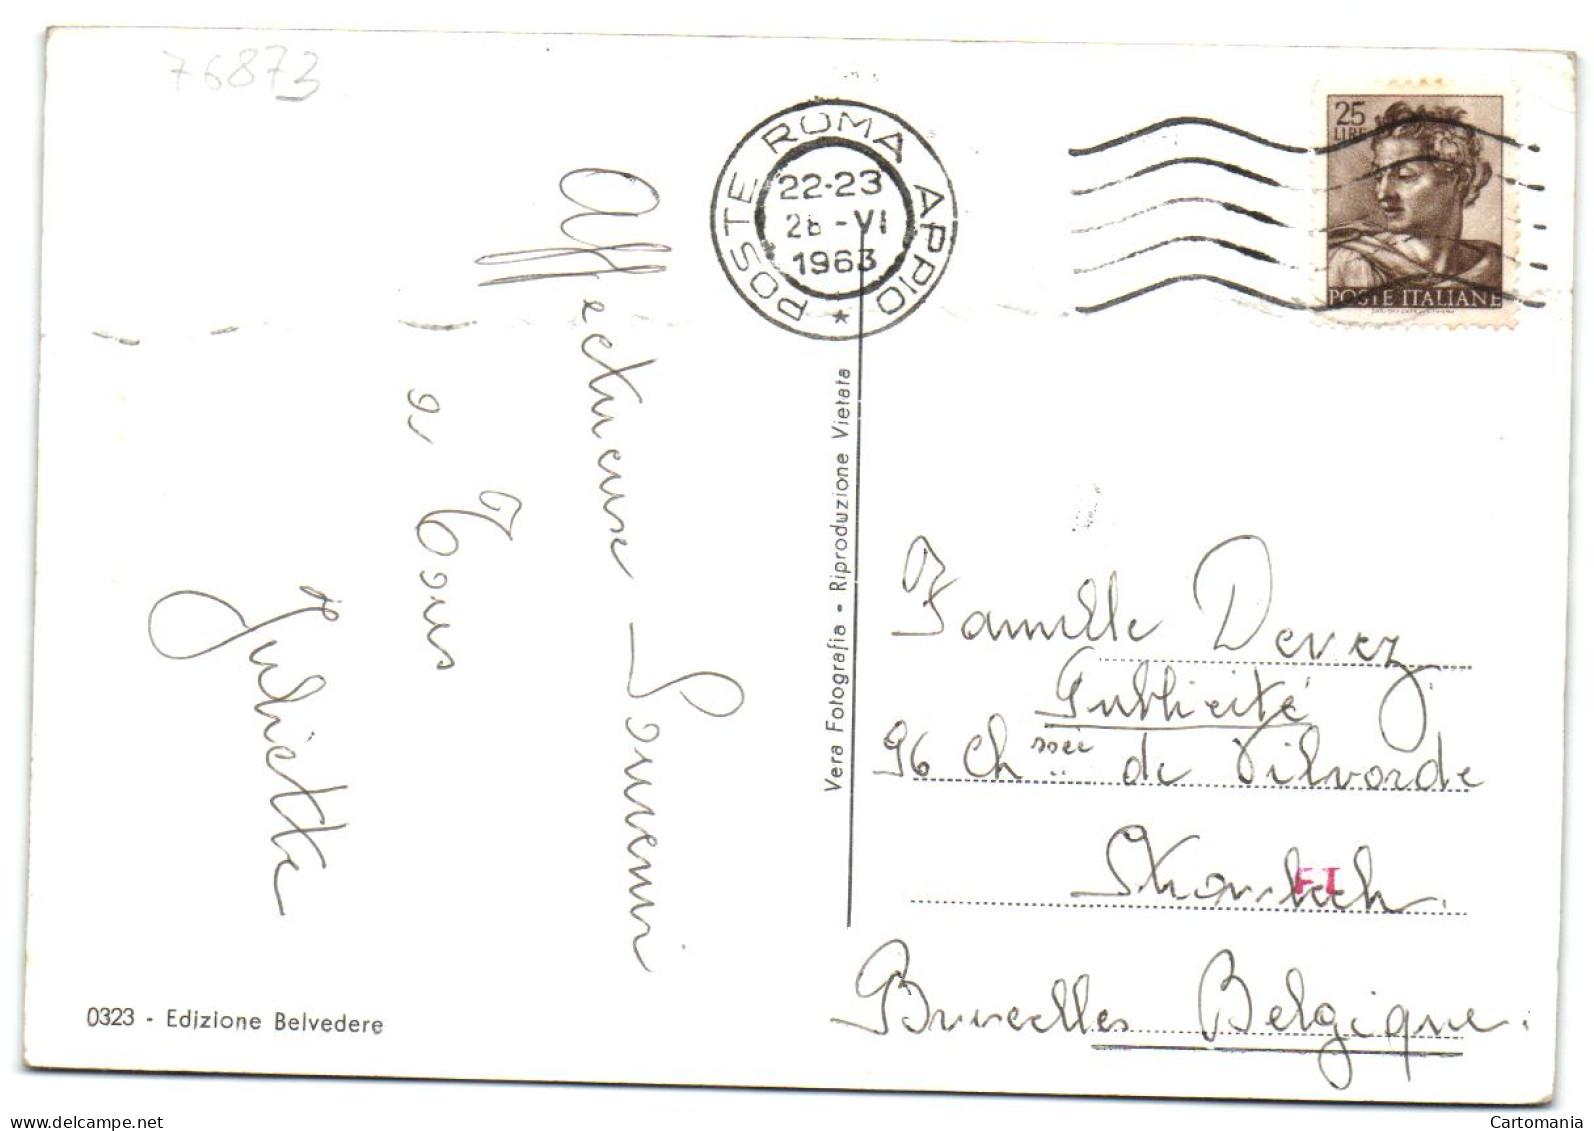 76873
POSTE ROMA APPIO
22-23
28 -VI
1963
25
LIRE
POSTE ITALIANE
Affectueuse Souvenir
a Tous
Juliette
Vera Fotografia - Riproduzione Vietata
Famille Devez
Publicité
96 Ch ssée de Vilvorde
Bruxelles Belgique.
FI
0323 - Edizione Belvedere
Cartomania